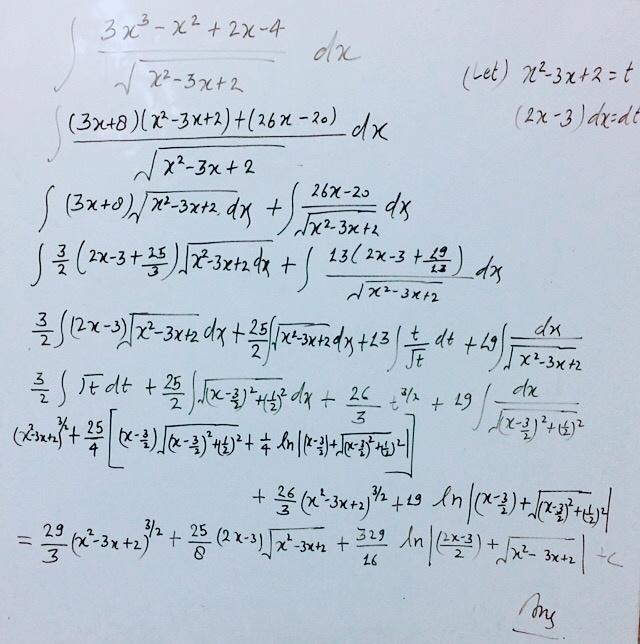 ∫ (3x³ − x² + 2x − 4)/√(x² − 3x + 2) dx
(Let) x² − 3x + 2 = t
(2x − 3) dx = dt
∫ ((3x+8)(x² − 3x + 2) + (26x − 20))/√(x² − 3x + 2) dx
∫ (3x+8)√(x² − 3x + 2) dx + ∫ (26x − 20)/√(x² − 3x + 2) dx
∫ 3/2 (2x − 3 + 25/3)√(x² − 3x + 2) dx + ∫ 13(2x − 3 + 19/13)/√(x² − 3x + 2) dx
3/2 ∫ (2x − 3)√(x² − 3x + 2) dx + 25/2 ∫ √(x² − 3x + 2) dx + 13 ∫ t/√t dt + 19 ∫ dx/√(x² − 3x + 2)
3/2 ∫ √t dt + 25/2 ∫ √((x − 3/2)² + (1/2)²) dx + 26/3 t^(3/2) + 19 ∫ dx/√((x − 3/2)² + (1/2)²)
(x² − 3x + 2)^(3/2) + 25/4 [(x − 3/2)√((x − 3/2)² + (1/2)²) + 1/4 ln|(x − 3/2) + √((x − 3/2)² + (1/2)²)|]
+ 26/3 (x² − 3x + 2)^(3/2) + 19 ln|(x − 3/2) + √((x − 3/2)² + (1/2)²)|
= 29/3 (x² − 3x + 2)^(3/2) + 25/8 (2x − 3)√(x² − 3x + 2) + 329/16 ln|((2x − 3)/2) + √(x² − 3x + 2)| + c
Ans